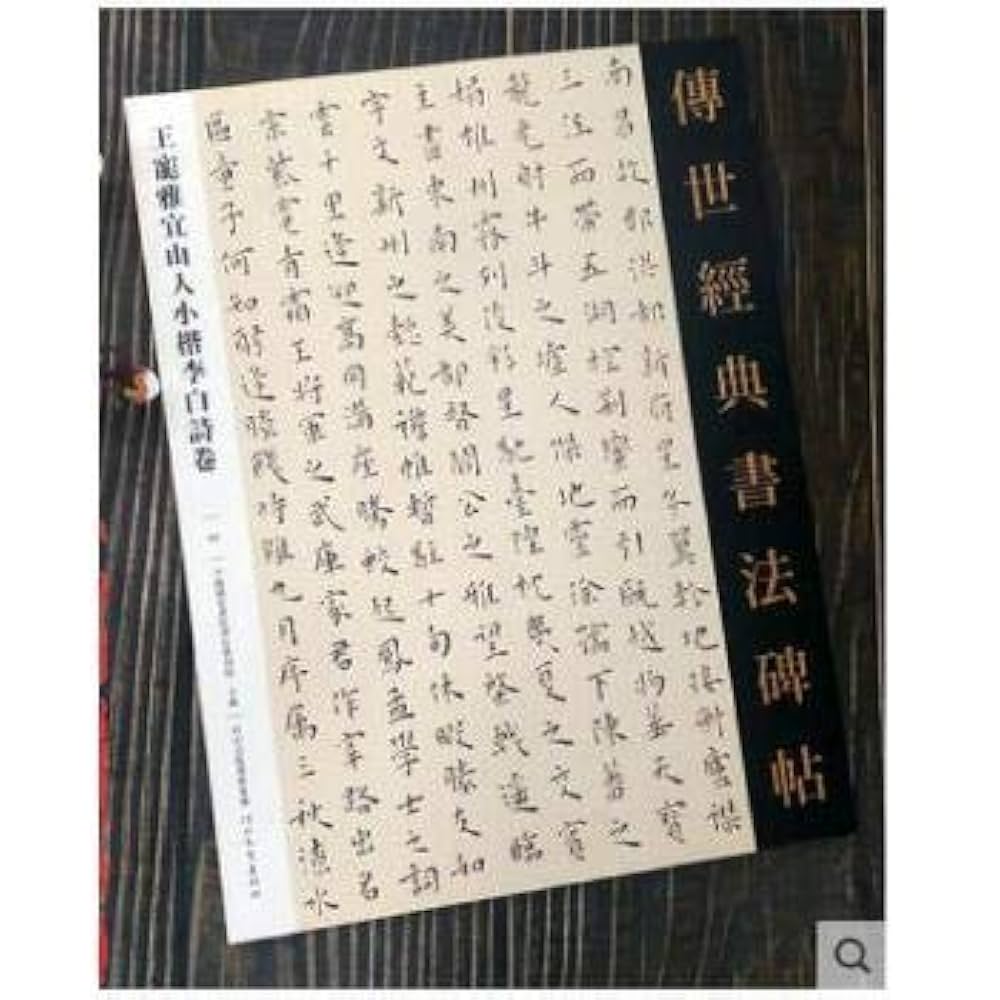 傳世經典書法碑帖
南昌故郡洪都新府星分翼軫地接衡廬襟
三江而帶五湖控荊蠻而引甌越物華天寶
龍光射牛斗之墟人傑地靈徐孺下陳蕃之
榻雄州霧列俊彩星馳臺隍枕夷夏之交賓
主盡東南之美都督閻公之雅望棨戟遙臨
宇文新州之懿範襜帷暫駐十旬休暇勝友如
雲千里逢迎高朋滿座騰蛟起鳳孟學士之詞
宗紫電青霜王將軍之武庫家君作宰路出名
區童子何知躬逢勝餞時維九月序屬三秋潦水
王寵雅宜山人小楷李白詩卷